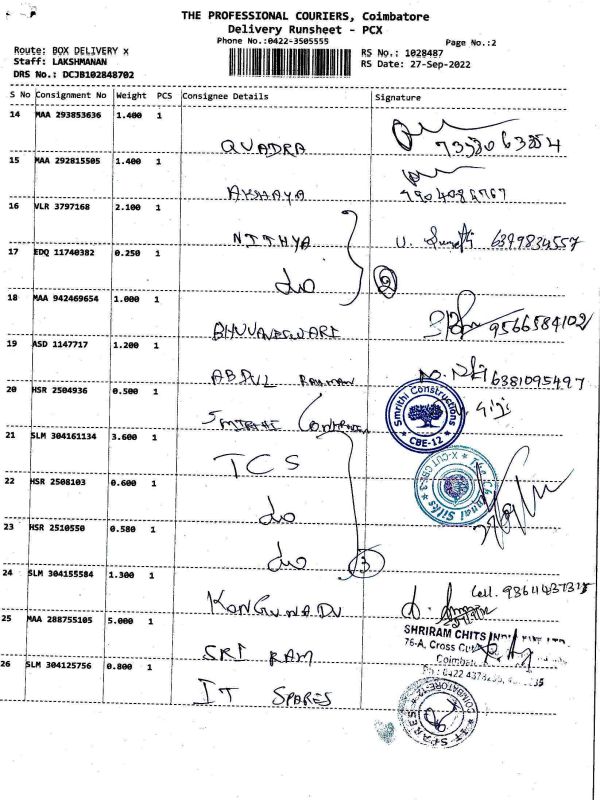 THE PROFESSIONAL COURIERS, Coimbatore
Delivery Runsheet - PCX
Phone No.:0422-3505555
Page No.:2
Route: BOX DELIVERY X
RS No.: 1028487
Staff: LAKSHMANAN
RS Date: 27-Sep-2022
DRS No.: DCJB102848702
S No Consignment No Weight PCS Consignee Details Signature
14 MAA 293853636 1.400 1
QUADRA
15 MAA 292815505 1.400 1
AKHAYA
16 VLR 3797168 2.100 1
NITHYA 6399834557
17 EDQ 11740382 0.250 1
do 2
18 MAA 942469654 1.000 1
BHUVANESWARI 9566584102
19 ASD 1147717 1.200 1
ABDUL RAHMAN 6381095497
20 HSR 2504936 0.500 1
Smrithi Constructions
* CBE-12 *
21 SLM 304161134 3.600 1
TCS
The Chennai Silks * X-CUT CBE-3 *
22 HSR 2508103 0.600 1
do
23 HSR 2510550 0.580 1
do 3
24 SLM 304155584 1.300 1
Cell.
KONGUNADU
25 MAA 288755105 5.000 1
SHRIRAM CHITS
76-A, Cross Cut
SRI RAM
Coimbat
Ph : 0422
26 SLM 304125756 0.800 1
IT SPARES
COIMBATORE-12 * IT SPARES *